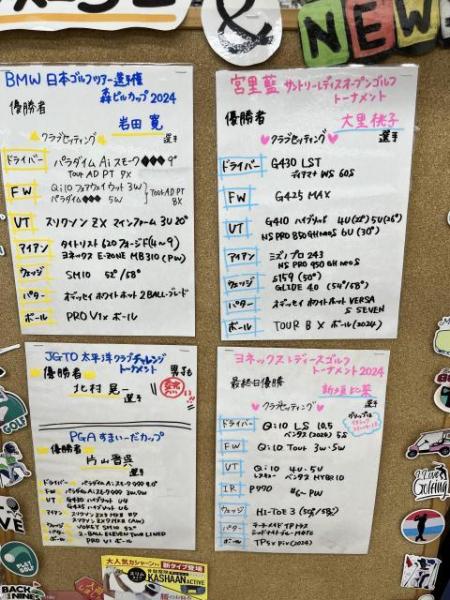 &
NEW
BMW 日本ゴルフツアー選手権
森ビルカップ 2024
優勝者
岩田 寛
選手
クラブセッティング
ドライバー パラダイム Ai スモーク ◆◆◆ 9°
TOUR AD PT 7X
FW Qi10 フェアウェイウッド 3W
パラダイム◆◆◆ 5W
TOUR AD PT 8X
UT スリクソン ZX マイウェイ 3U 20°
アイアン タイトリスト 620
ヨネックス E-ZONE MB310 (PW)
ウェッジ SM10 52°/58°
パター オデッセイ ホワイトホット 2BALL-ブレード
ボール PRO V1x ボール
宮里藍 サントリーレディスオープンゴルフ
トーナメント
優勝者
大里桃子
選手
クラブセッティング
ドライバー G430 LST
ディアマナ WS 60S
FW G425 MAX
UT G410 ハイブリッド 4U(22°)5U(26°)
NS PRO 850GH neo S 6U(30°)
アイアン ミズノプロ 243
NS PRO 950GH neo S
ウェッジ S159 (50°)
GLIDE 4.0 (54°/58°)
パター オデッセイ ホワイトホット VERSA
S SEVEN
ボール TOUR B X ボール(2024)
JGTO 太平洋クラブチャレンジ
トーナメント
優勝者
北村晃一
選手
男子も
熱い!
PGA すまいーだカップ
優勝者
片山晋呉
選手
ドライバー
FW
UT G430 ハイブリッド U4
UT G410 ハイブリッド U6
アイアン スリクソン ZX7MKII #7
ウェッジ VOKEY SM10 52°
パター 2-BALL ELEVEN TOUR LINED
ボール PRO V1 ボール
ヨネックスレディースゴルフ
トーナメント2024
最終日優勝
新垣比菜
選手
クラブセッティング
ドライバー Qi10 LS 10.5
ベンタス(2024) 5S
FW Qi10 Tour 3W・5W
UT Qi10 4U・5U
ベンタス HYBRID
IR P770 #6~PW
ウェッジ Hi-Toe 3
パター テーラーメイド
ボール TP5x Pix(2024)
大人気カシャーンに新タイプ登場
KASHAAN ACTIVE
GOLF
I Love Golfing
BACK NINE